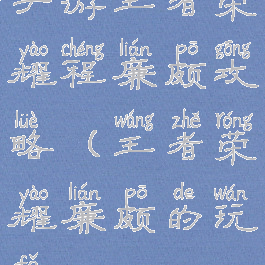 手游王者荣
yào chéng lián pō gōng
耀程廉颇攻
lüè wáng zhě róng
略（王者荣
yào lián pō de wán
耀廉颇的玩
fǎ